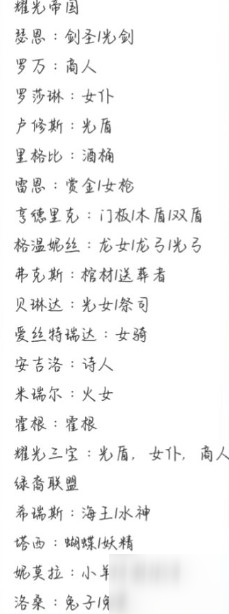 耀光帝国
瑟恩：剑圣/光剑
罗万：商人
罗莎琳：女仆
卢修斯：光盾
里格比：酒桶
雷恩：赏金/女枪
亨德里克：门板/木盾/双盾
格温妮丝：龙女/龙弓/光弓
弗克斯：棺材/送葬者
贝琳达：光女/祭司
爱丝特瑞达：女骑
安吉洛：诗人
米瑞尔：火女
霍根：霍根
耀光三宝：光盾，女仆，商人
绿裔联盟
希瑞斯：海王/水神
塔西：蝴蝶/妖精
妮莫拉：小羊
洛桑：兔子/兔